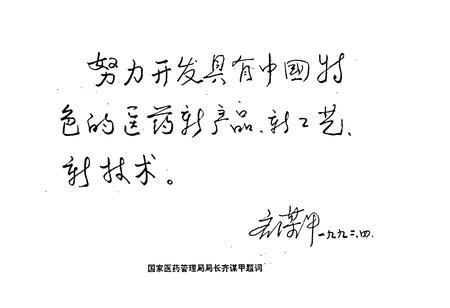 努力开发具有中國特
色的医药新产品、新工艺、
新技术。
齐谋甲 一九九二.四.
国家医药管理局局长齐谋甲题词